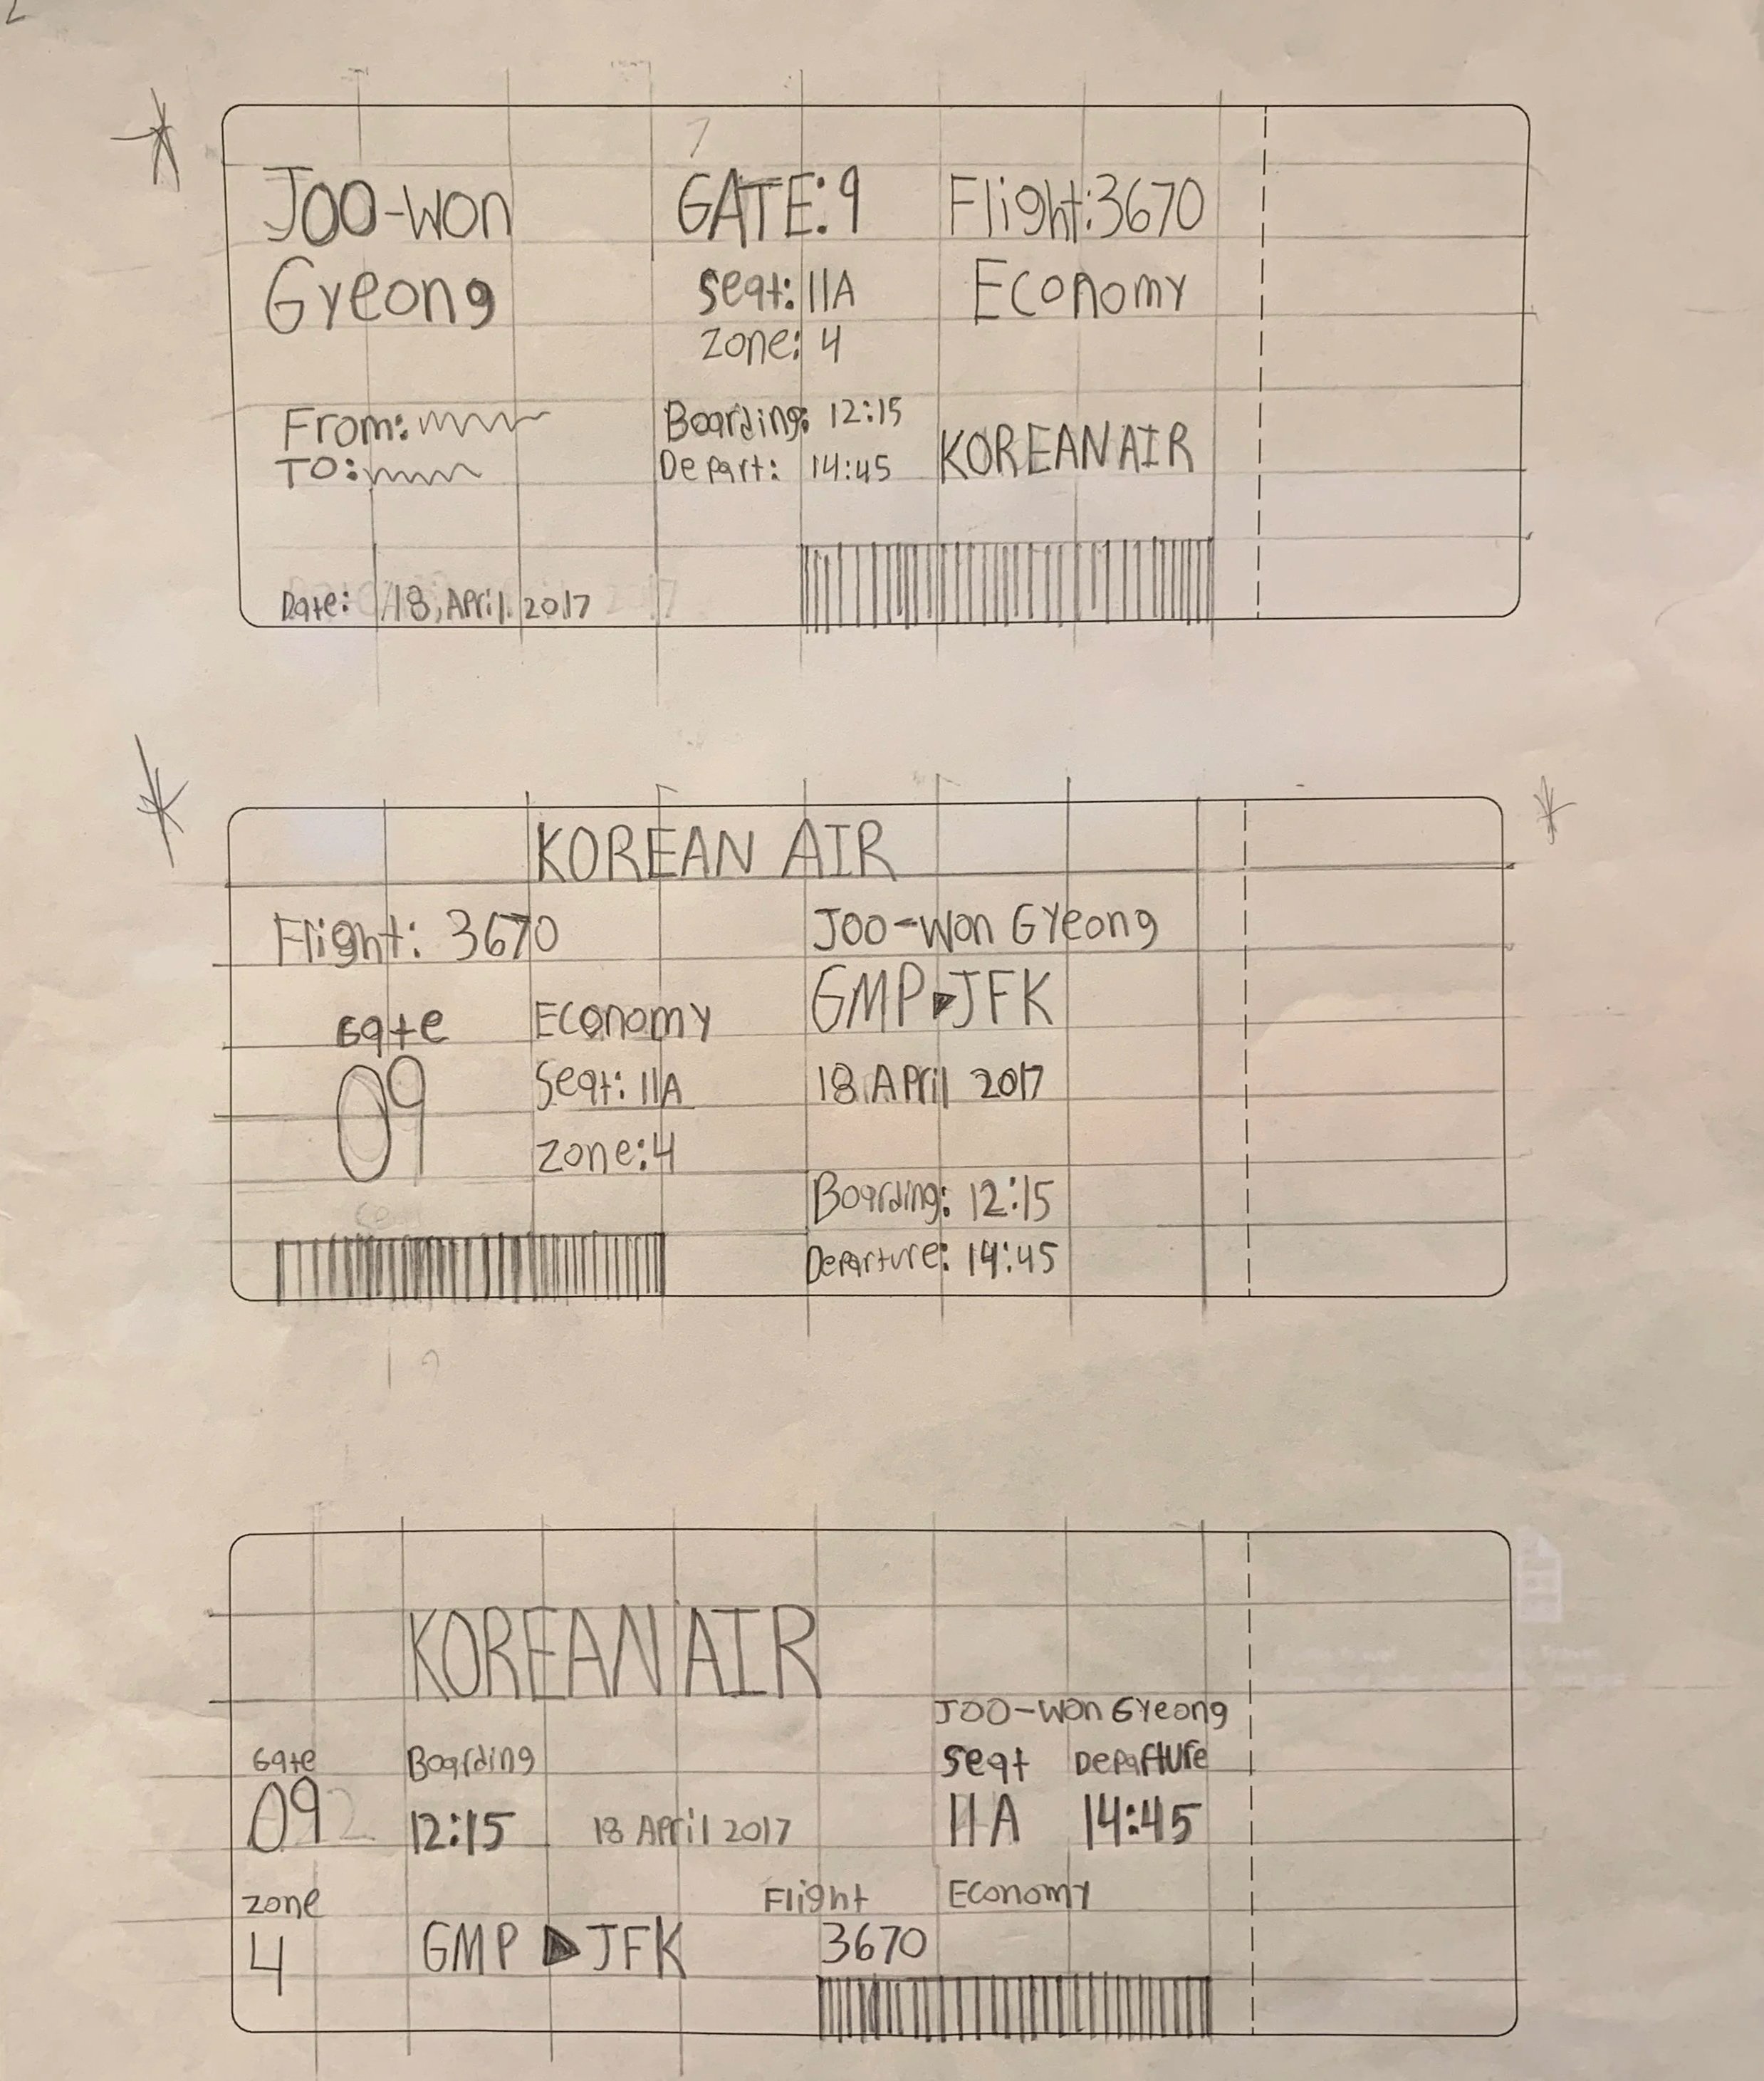 JOO-WON GATE:9 Flight:3670
Gyeong Seat:11A Economy
Zone: 4
From:
TO:
Boarding: 12:15
Depart: 14:45
KOREAN AIR
Date: 18, April 2017
KOREAN AIR
Flight: 3670
Gate
09
Economy
Seat: 11A
Zone:4
JOO-WON GYeong
GMP▶JFK
18 April 2017
Boarding: 12:15
Departure: 14:45
KOREAN AIR
JOO-WON GYeong
Gate Boarding Seat Departure
09 12:15 18 April 2017 11A 14:45
Zone Flight Economy
4 GMP ▶ JFK 3670